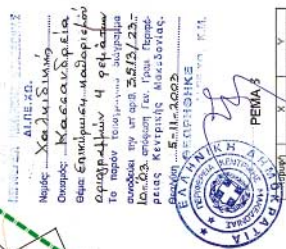 ΔΙ.ΠΕ.ΧΩ.
Νομός: Χαλκιδικής
Οικισμός: Κασσανδρεία
Θέμα: Επικύρωση καθορισμού
οριογραμμών 4 ρεμάτων
Το παρόν τοπογραφικό διάγραμμα
συνοδεύει την υπ' αριθ. 3513/23-
10-03 απόφαση Γεν. Γραμ. Περιφέ-
ρειας Κεντρικής Μακεδονίας.
5-11-2003
ΘΕΩΡΗΘΗΚΕ
ΕΛΛΗΝΙΚΗ ΔΗΜΟΚΡΑΤΙΑ
ΠΕΡΙΦΕΡΕΙΑ ΚΕΝΤΡΙΚΗΣ ΜΑΚΕΔΟΝΙΑΣ
ΡΕΜΑ
X Y